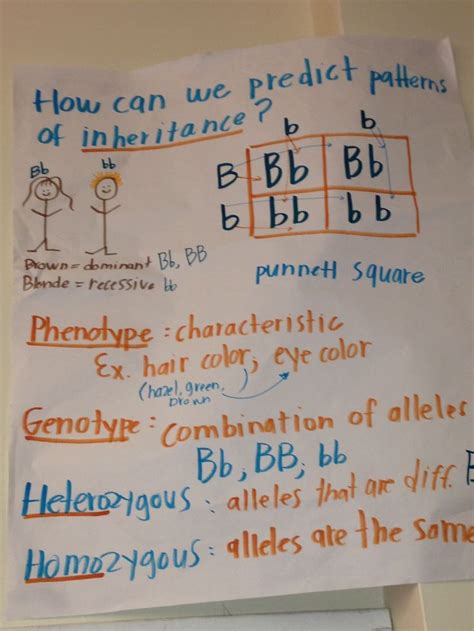 How can we predict patterns
of inheritance?
b b
Bb bb
B Bb Bb
b bb bb
Brown = dominant Bb, BB
Blonde = recessive bb
punnett square
Phenotype : characteristic
Ex. hair color, eye color
(hazel, green,
brown
Genotype : combination of alleles
Bb, BB, bb
Heterozygous : alleles that are diff. B
Homozygous : alleles are the same